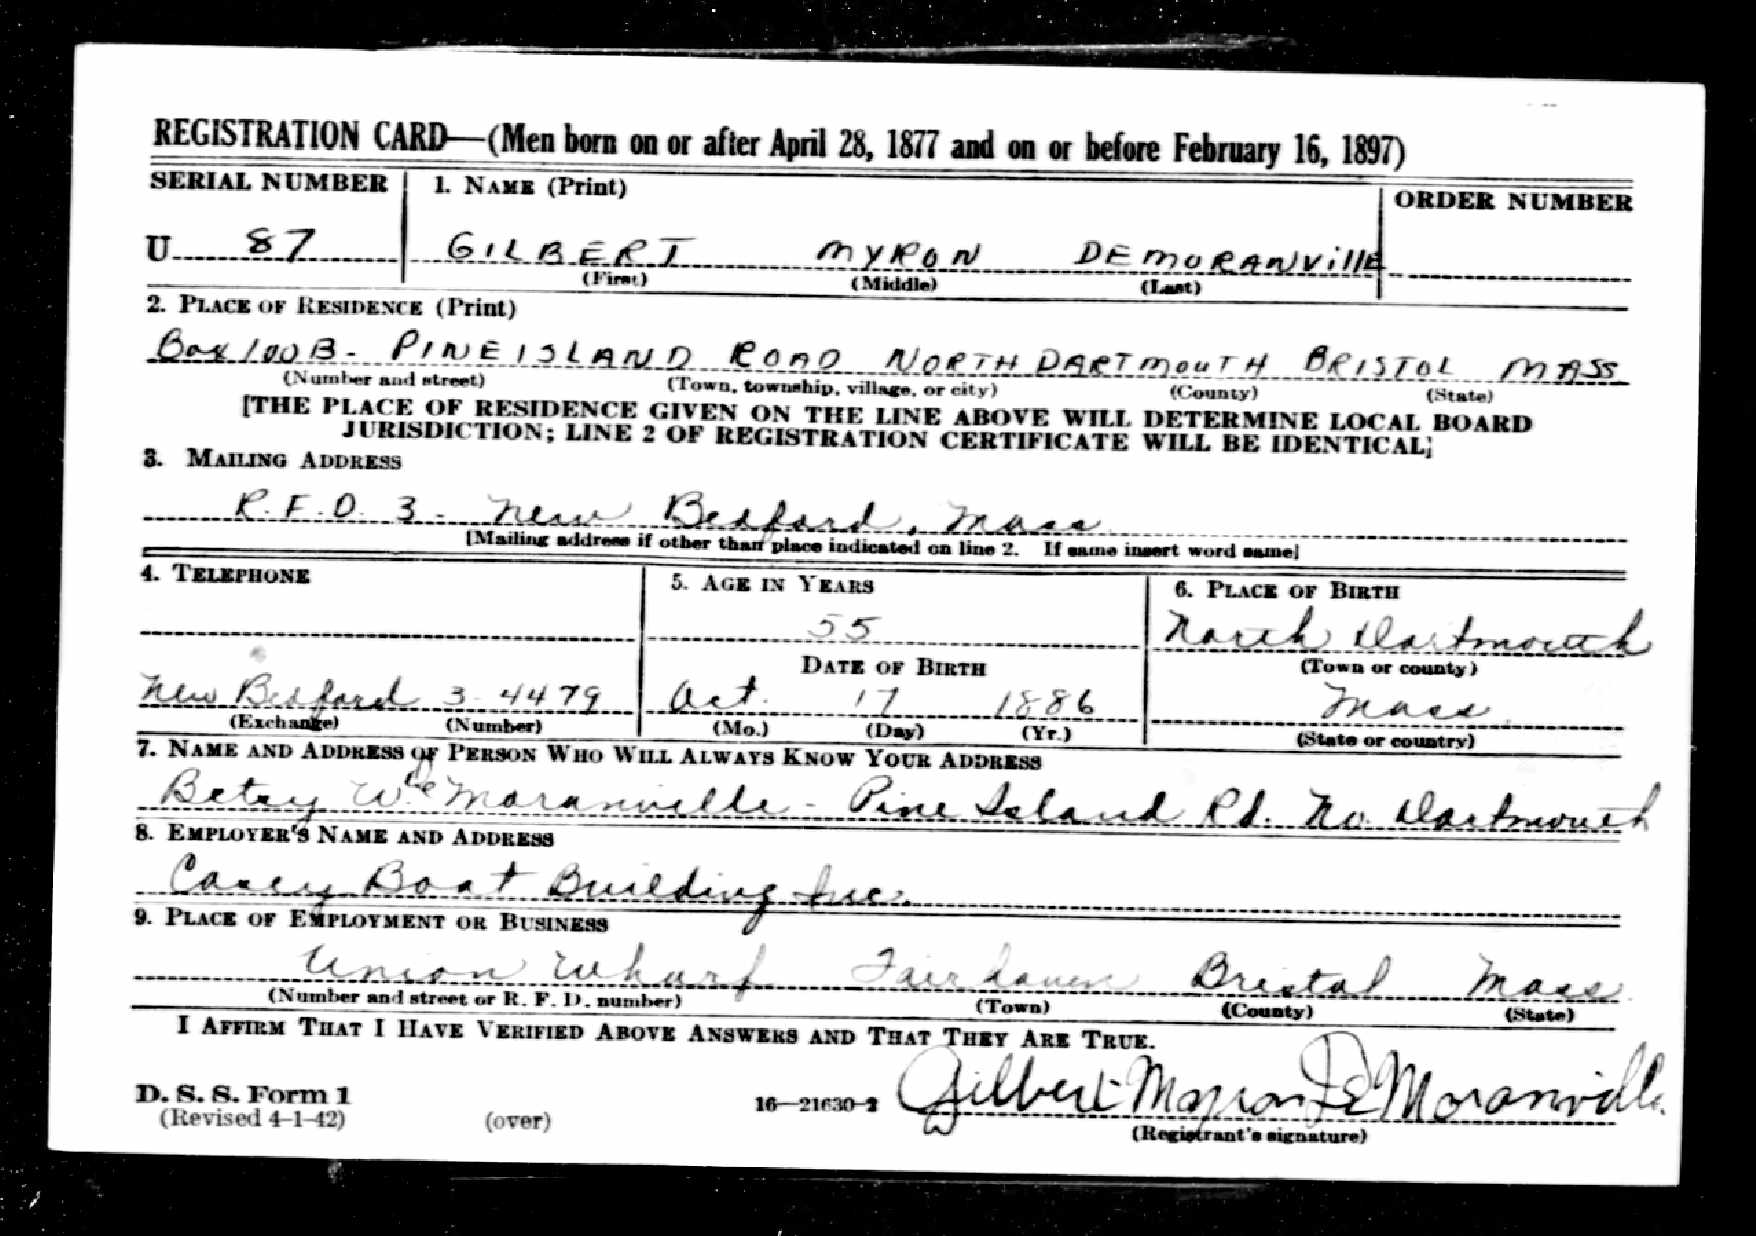 REGISTRATION CARD—(Men born on or after April 28, 1877 and on or before February 16, 1897)
SERIAL NUMBER 1. NAME (Print) ORDER NUMBER
U 87 GILBERT MYRON DEMORANVillE
(First) (Middle) (Last)
2. PLACE OF RESIDENCE (Print)
Box 100B - PINE ISLAND ROAD NORTH DARTMOUTH BRISTOL MASS
(Number and street) (Town, township, village, or city) (County) (State)
[THE PLACE OF RESIDENCE GIVEN ON THE LINE ABOVE WILL DETERMINE LOCAL BOARD
JURISDICTION; LINE 2 OF REGISTRATION CERTIFICATE WILL BE IDENTICAL]
3. MAILING ADDRESS
R.F.D. 3 - New Bedford, Mass
[Mailing address if other than place indicated on line 2. If same insert word same]
4. TELEPHONE 5. AGE IN YEARS 6. PLACE OF BIRTH
55 North Dartmouth
DATE OF BIRTH (Town or county)
New Bedford 3-4479 Oct. 17 1886 Mass
(Exchange) (Number) (Mo.) (Day) (Yr.) (State or country)
7. NAME AND ADDRESS OF PERSON WHO WILL ALWAYS KNOW YOUR ADDRESS
Betsy W. DeMoranville - Pine Island Rd. No. Dartmouth
8. EMPLOYER'S NAME AND ADDRESS
Casey Boat Building Inc.
9. PLACE OF EMPLOYMENT OR BUSINESS
Union Wharf Fairhaven Bristol Mass
(Number and street or R. F. D. number) (Town) (County) (State)
I AFFIRM THAT I HAVE VERIFIED ABOVE ANSWERS AND THAT THEY ARE TRUE.
D. S. S. Form 1
(Revised 4-1-42) (over) 16—21630-2 Gilbert Myron DeMoranville.
(Registrant's signature)